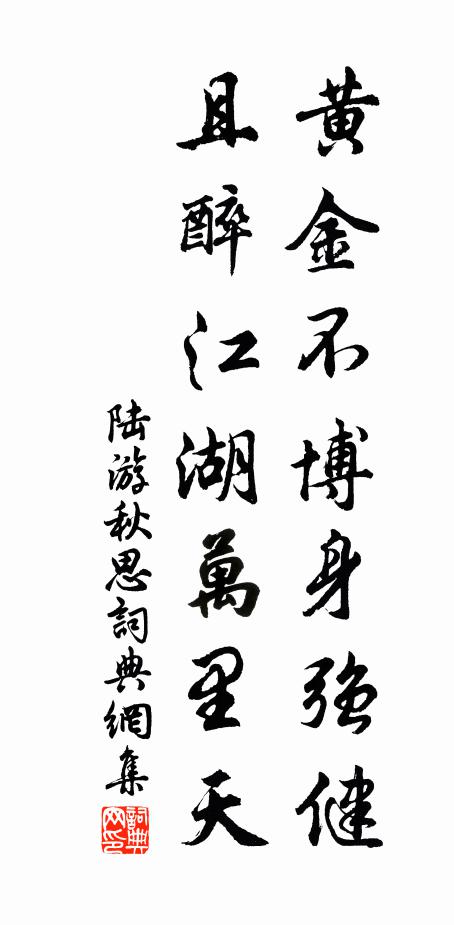 黃金不博身強健
且醉江湖萬里天
陆游秋思詞典網集
詞典网印